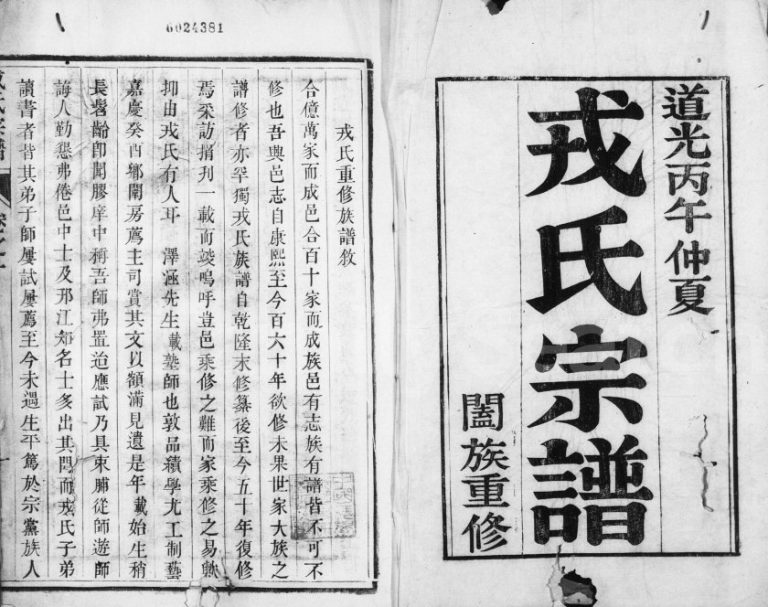 道光丙午仲夏
戎氏宗譜
闔族重修
6024381
戎氏重修族譜敘
合億萬家而成邑合百十家而成族邑有志族有譜皆不可不
修也吾輿邑志自康熙至今百六十年欲修未果世家大族之
譜修者亦罕獨戎氏族譜自乾隆末修纂後至今五十年復修
焉采訪捐刊一載而竣嗚呼豈邑乘修之難而家乘修之易歟
抑由戎氏有人耳 澤涵先生載塾師也敦品績學尤工制藝
嘉慶癸酉鄉闈房薦主司賞其文以額滿見遺是年載始生稍
長髫齡卽聞膠庠中稱吾師弗置迨應試乃具束脯從師遊師
誨人勤懇弗倦邑中士及邗江知名士多出其門而戎氏子弟
讀書者皆其弟子師屢試屢薦至今未遇生平篤於宗黨族人
戎氏宗譜